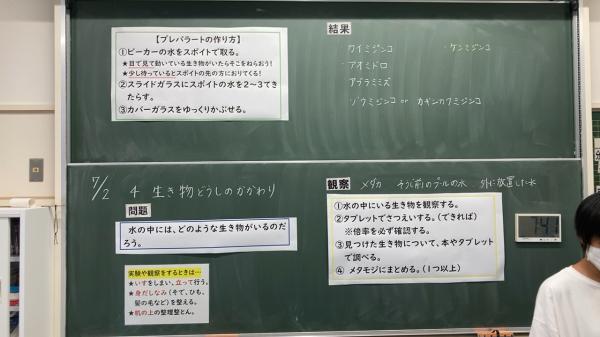 【プレパラートの作り方】
①ビーカーの水をスポイトで取る。
★目で見て動いている生き物がいたらそこをねらおう！
★少し待っているとスポイトの先の方におりてくる！
②スライドガラスにスポイトの水を2～3てきたらす。
③カバーガラスをゆっくりかぶせる。
結果
・ケンミジンコ
アオミドロ
アブラミミズ
ゾウミジンコ or
7/2 4 生き物どうしのかかわり
問題
水の中には、どのような生き物がいるのだろう。
実験や観察をするときは…
★いすをしまい、立って行う。
★身だしなみ（そで、ひも、髪の毛など）を整える。
★机の上の整理整とん。
観察 メダカ そうじ前のプールの水 外に放置した水
①水の中にいる生き物を観察する。
②タブレットでさつえいする。（できれば）
※倍率を必ず確認する。
③見つけた生き物について、本やタブレットで調べる。
④ メタモジにまとめる。（1つ以上）